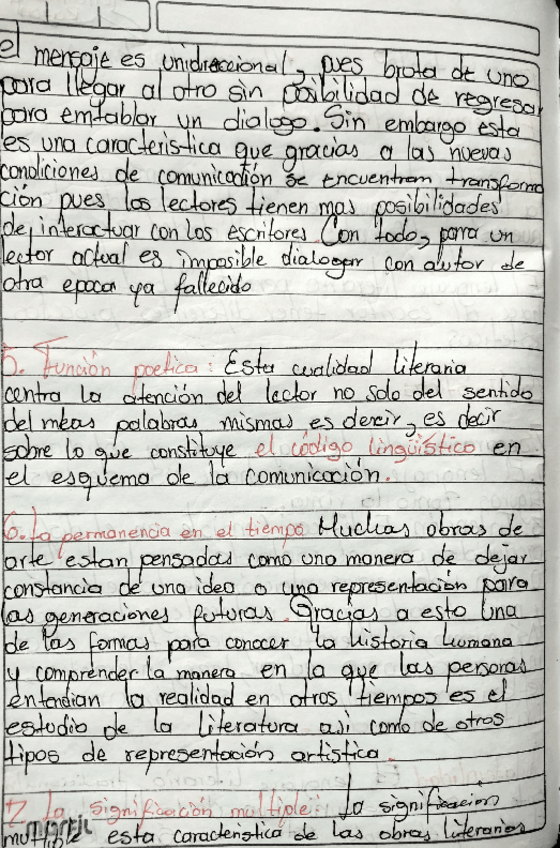 el mensaje es unidireccional, pues brota de uno
para llegar al otro sin posibilidad de regresar
para emtablar un dialogo. Sin embargo esta
es una caracteristica que gracias a las nuevas
condiciones de comunicación se encuentram transforma
ción pues los lectores tienen mas posibilidades
de interactuar con los escritores. Con todo, para un
lector actual es imposible dialogar con autor de
otra epoca ya fallecido
5. Función poetica: Esta cualidad literaria
centra la atención del lector no solo del sentido
del meas palabras mismas es dereir, es decir
sobre lo que constituye el código lingüístico en
el esquema de la comunicación.
6. La permanencia en el tiempo Muchas obras de
arte estan pensadas como una manera de dejar
constancia de una idea o una representación para
las generaciones futuras. Gracias a esto una
de las formas para conocer la historia humana
y comprender la manera en la que las personas
entendian la realidad en otros tiempos es el
estudio de la literatura asi como de otros
tipos de representación artistica.
7. La significación multiple: La significacion
multible esta caracteristica de las obras literarias